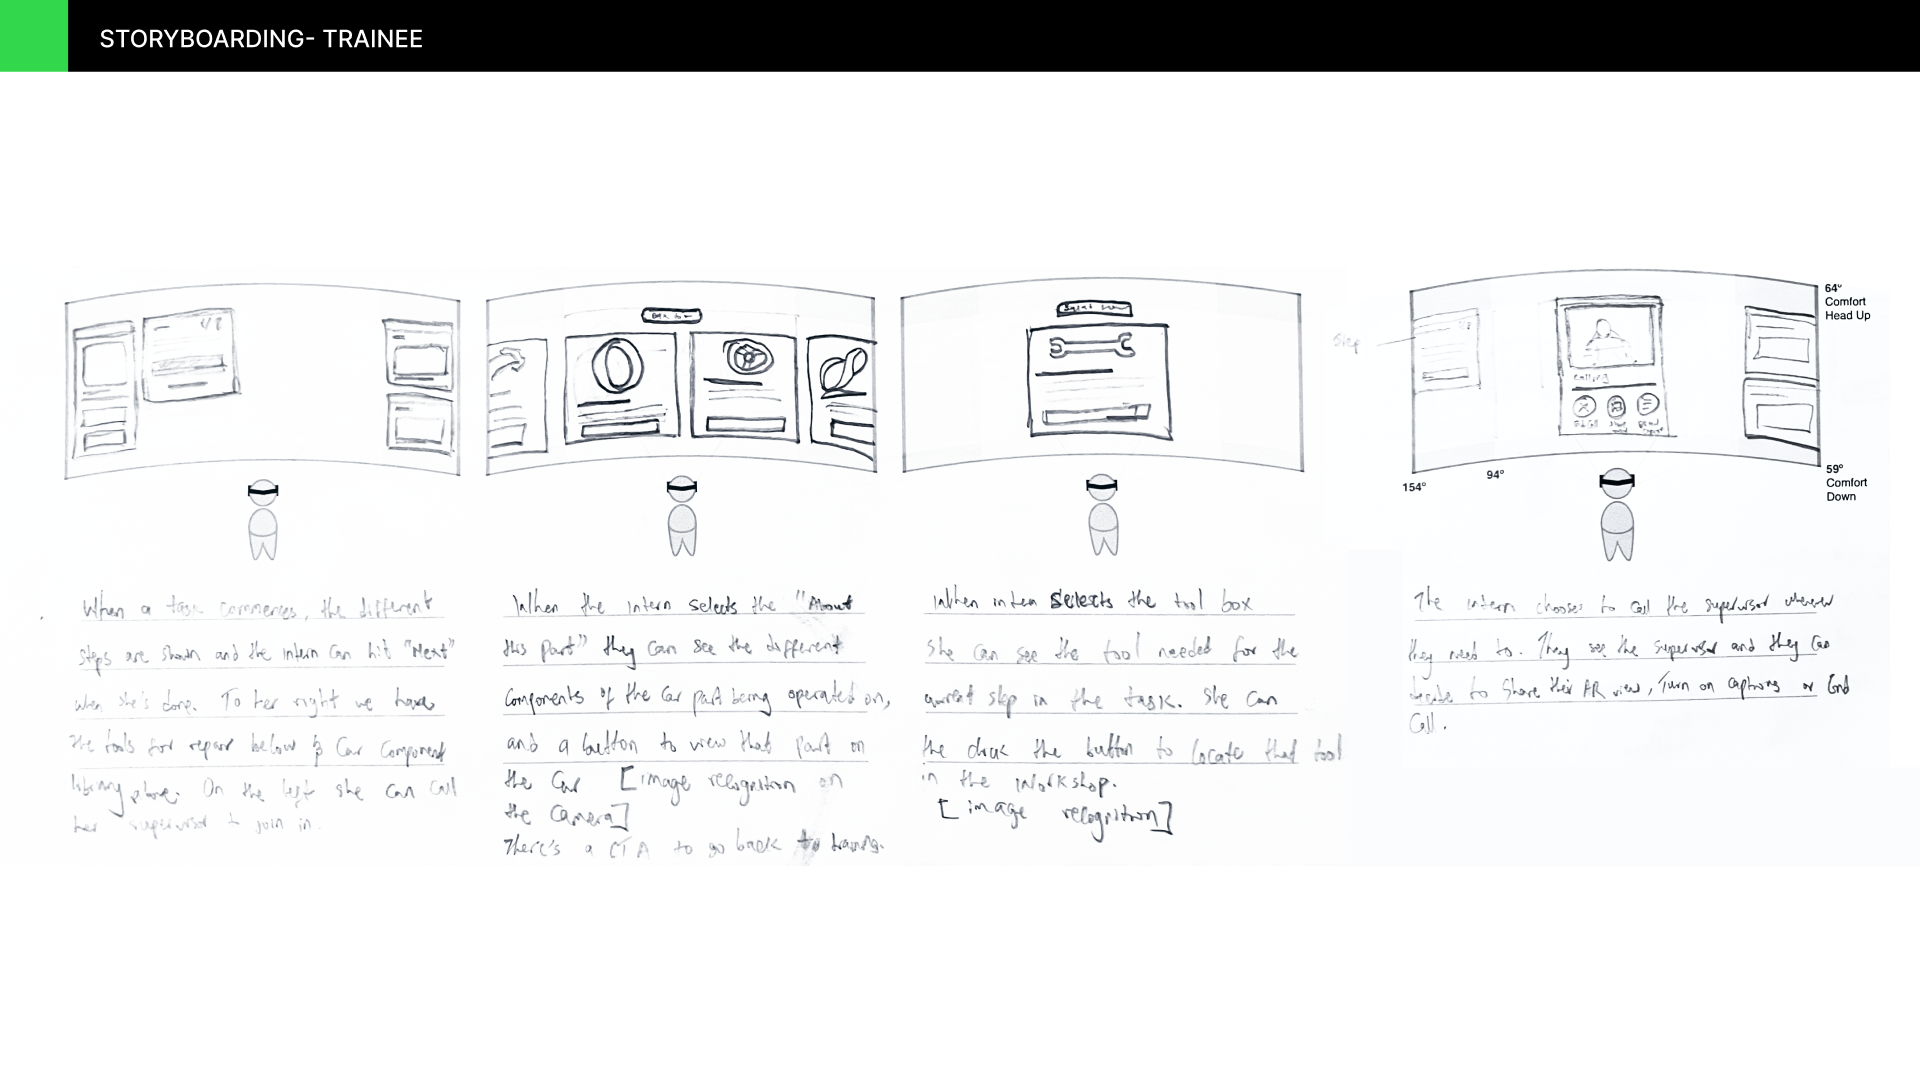 STORYBOARDING- TRAINEE
When a task commences, the different
steps are shown and the intern can hit "Next"
when she's done. To her right we have
the tools for repair below & Car Component
library above. On the left she can call
her supervisor to join in.
When the intern selects the "About
this part" they can see the different
components of the car part being operated on,
and a button to view that part on
the car [image recognition on
the camera]
There's a CTA to go back to training.
When intern selects the tool box
she can see the tool needed for the
current step in the task. She can
the click the button to locate that tool
in the workshop.
[image recognition]
Step
Calling
64°
Comfort
Head Up
59°
Comfort
Down
154°
94°
The intern chooses to call the supervisor whenever
they need to. They see the supervisor and they can
decide to share their AR view, Turn on captions or End
Call.